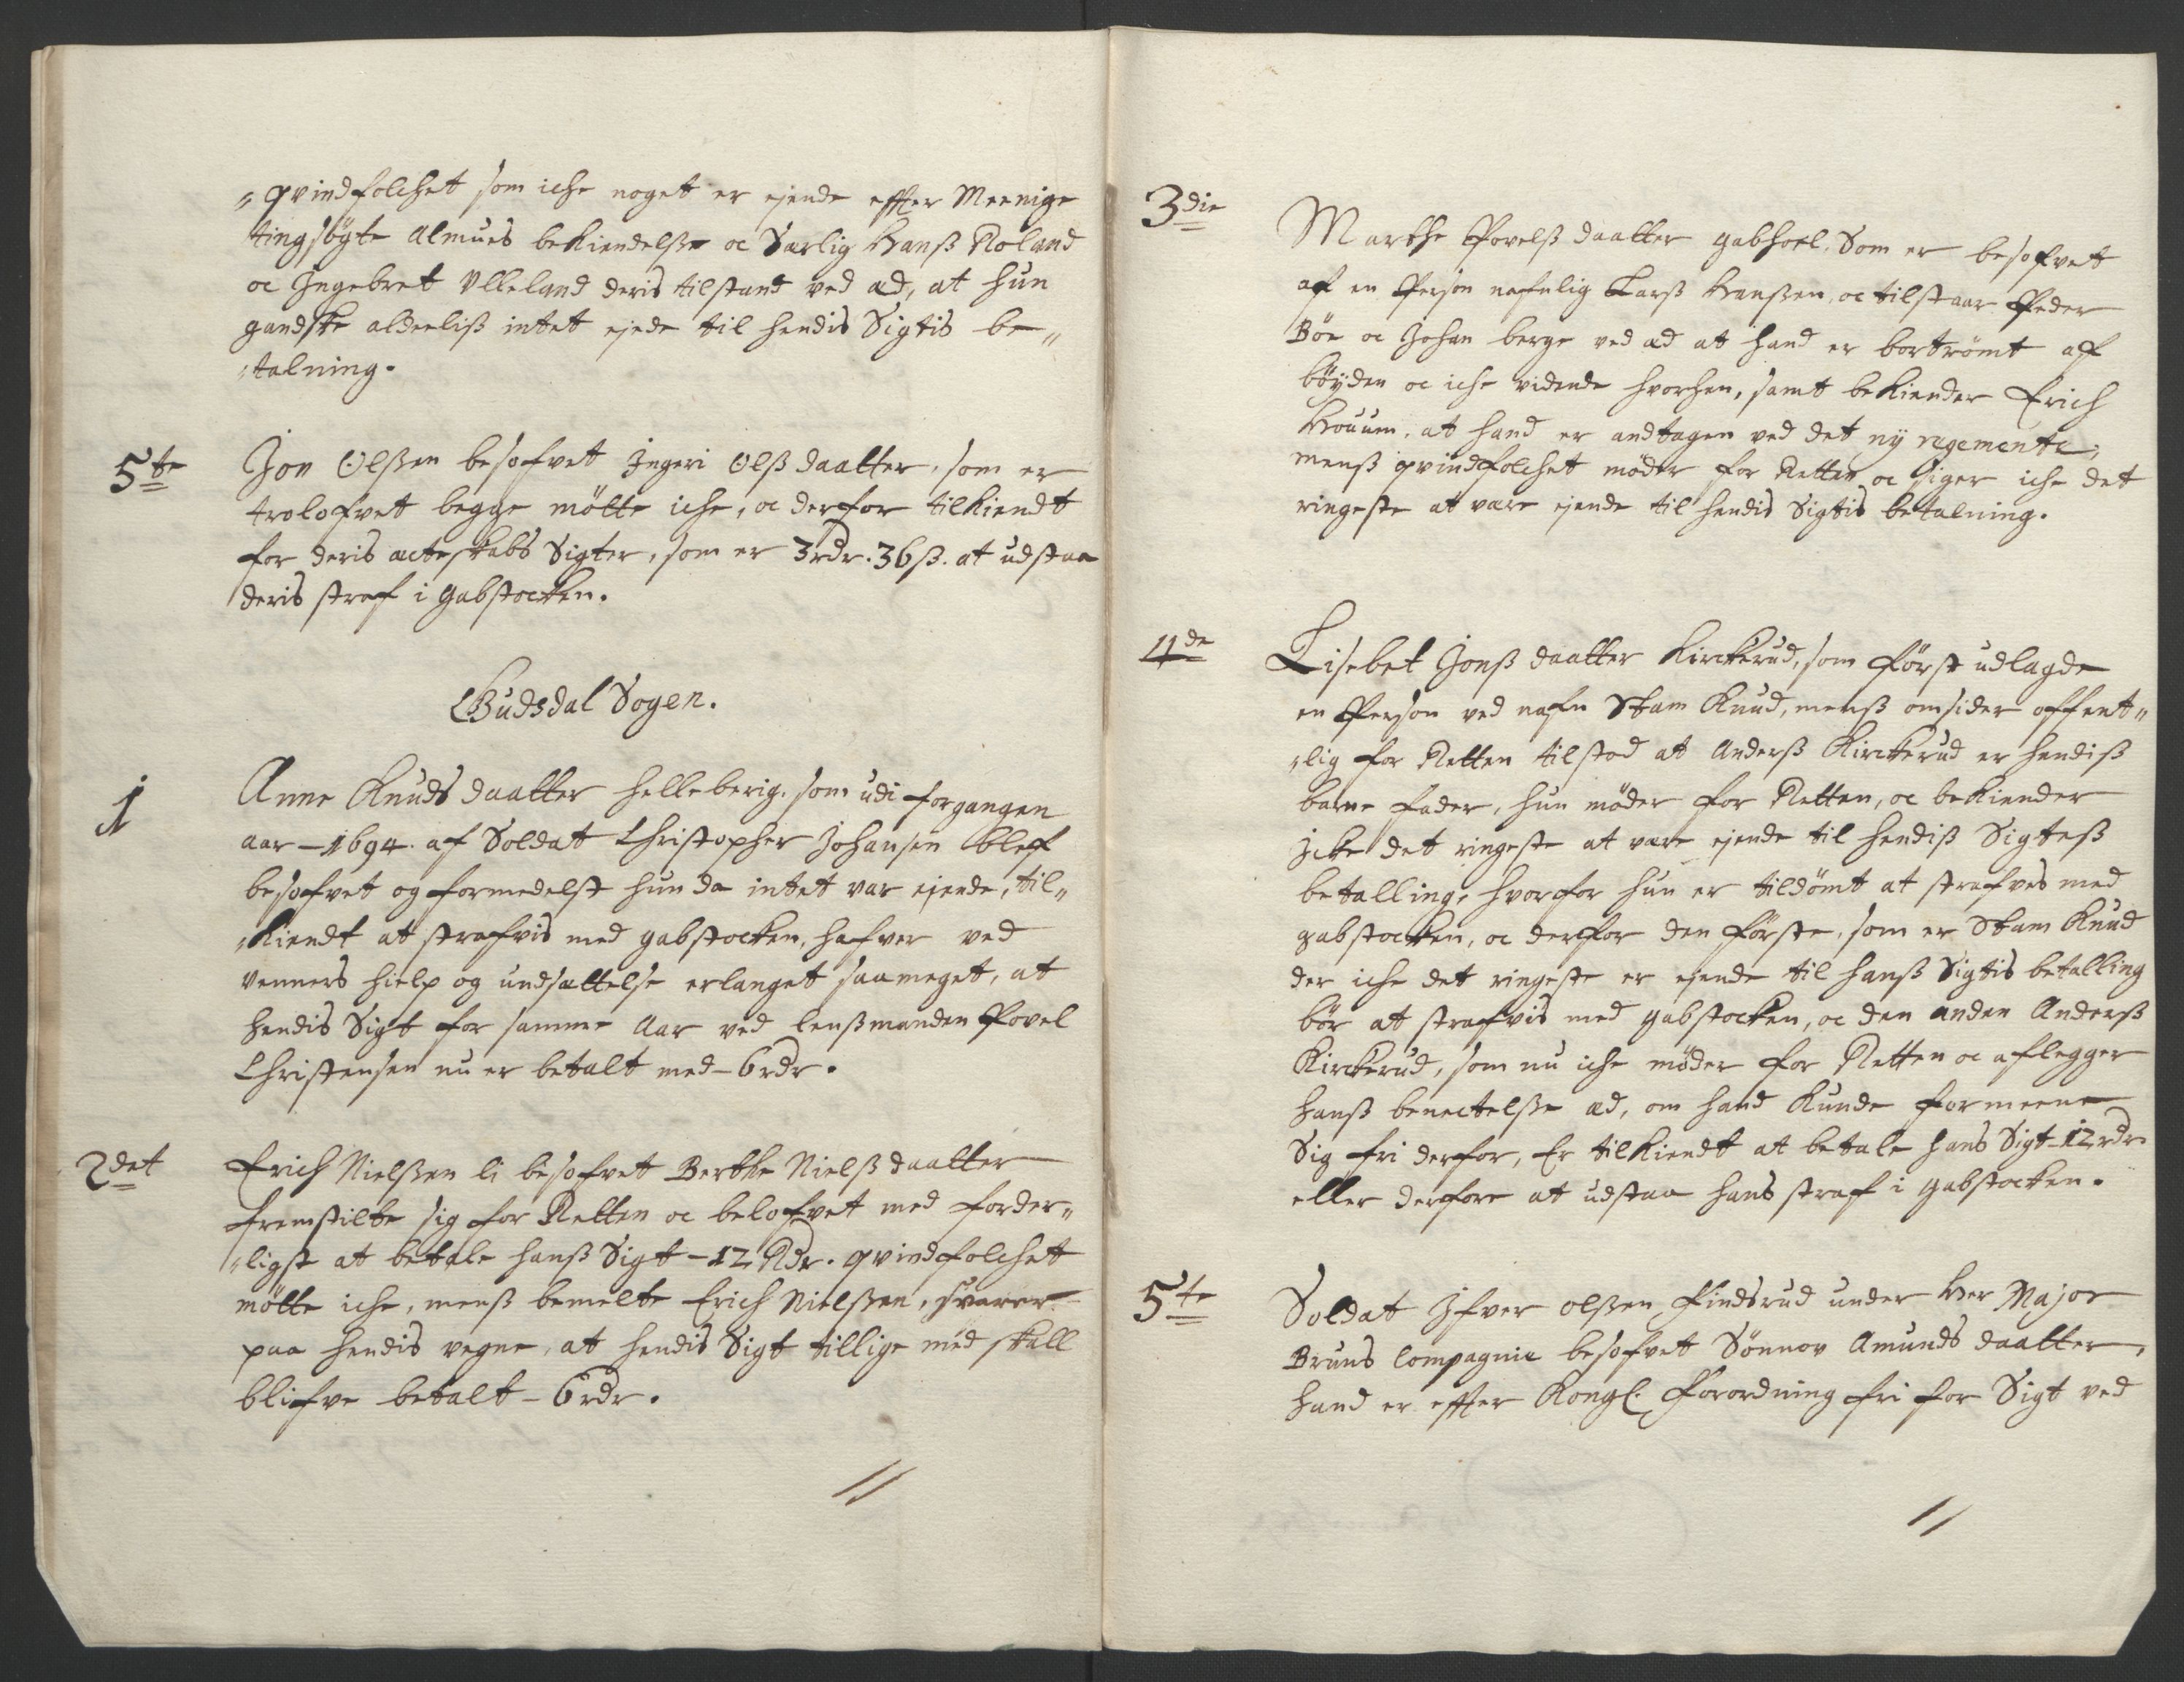 „qvindfolchet som iche noget er ejende effter Meenige
tingsögte Almues bekiendelsse oc Særlig Hanss Roland
oc Ingebret Ulleland deris tilstand ved æd, at hun
gandske aldeeliss intet ejede til hendis Sigtis be„
„talning.
5te Jon Olssen besofvet Ingeri Olss daatter, som er
trolofvet begge mötte iche, oc derfor tilkiendt
for deris ecteskabs Sigter, som er 3rdr. 36 ss. at udstaa
deris straf i Gabstocken.
Gudsdal Sogen.
1 Anne Knuds daatter helleberig, som udi forgangen
aar – 1694. af Soldat Christopher Johansen blef
besofvet og formedelst hun da intet var ejende, til„
„kiendt at strafvis med gabstocken, hafver ved
venners hielp og undsættelse erlanget saameget, at
hendis Sigt for samme Aar ved lenssmanden Povel
Christensen nu er betalt med – 6rdr.
2det Erich Nielssen li besofvet Berthe Nielss daatter
fremstilte sig for Retten oc belofvet med forder„
„ligst at betale hanss Sigt – 12 Rdr. qvindfolchet
mötte iche, menss bemelte Erich Nielssen, svarer
paa hendis vegne, at hendis Sigt tillige med skall
blifve betalt – 6rdr.
//
3die Marthe Povelss daatter gabhoel, Som er besofvet
af en Person nafnlig Larss Hanssen, oc tilstaar Peder
Böe oc Johan berge ved æd at hand er bortrömt af
böyden oc iche vidende hvorhen, samt bekiender Erich
Houum, at hand er andtagen ved det ny regemente;
menss qvindfolchet möder for Retten oc siger iche det
ringeste at være ejende til hendis Sigtis betalning.
4de Lisebet Jonss daatter Kirckerud, som först udlagde
en Person ved nafn Stam Knud, menss omsider offent„
„lig for Retten tilstod at Anderss Kirckerud er hendiss
barne fader, hun möder for Retten, oc bekiender
icke det ringeste at være ejende til hendiss Sigtess
betalling, hvorfor hun er tildömt at strafves med
gabstocken, oc derfor den förste, som er Stam Knud
der iche det ringeste er ejende til hanss Sigtis betalling
bör at strafvis med gabstocken, oc den anden Anderss
Kirckerud, som nu iche möder for Retten oc aflegger
hanss benectelsse æd, om hand kunde formeene
Sig fri derfor, Er tilkiendt at betale hans Sigt – 12rdr
eller derfore at udstaa hans straf i gabstocken.
5te Soldat Ifver olssen Findsrud under Her Major
Bruns Compagnie besofvet Sönnov Amunds daatter,
hand er effter Kongl. Forordning fri for Sigt ved
//